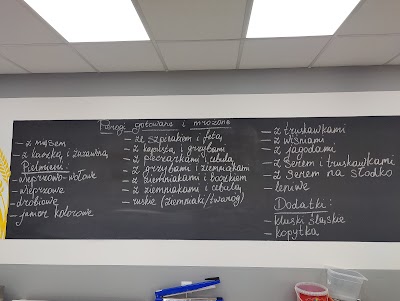 Pierogi gotowane i mrożone
– z mięsem
– z kaczką i żurawiną
Pielmieni:
– wieprzowo-wołowe
– wieprzowe
– drobiowe
– junior kolorowe
– z szpinakiem i fetą
– z kapustą i grzybami
– z pieczarkami i cebulą
– z grzybami i ziemniakami
– z ziemniakami i boczkiem
– z ziemniakami i cebulą
– ruskie (ziemniaki/twaróg)
– z truskawkami
– z wiśniami
– z jagodami
– z serem i truskawkami
– z serem na słodko
– leniwe
Dodatki:
– kluski śląskie
– kopytka